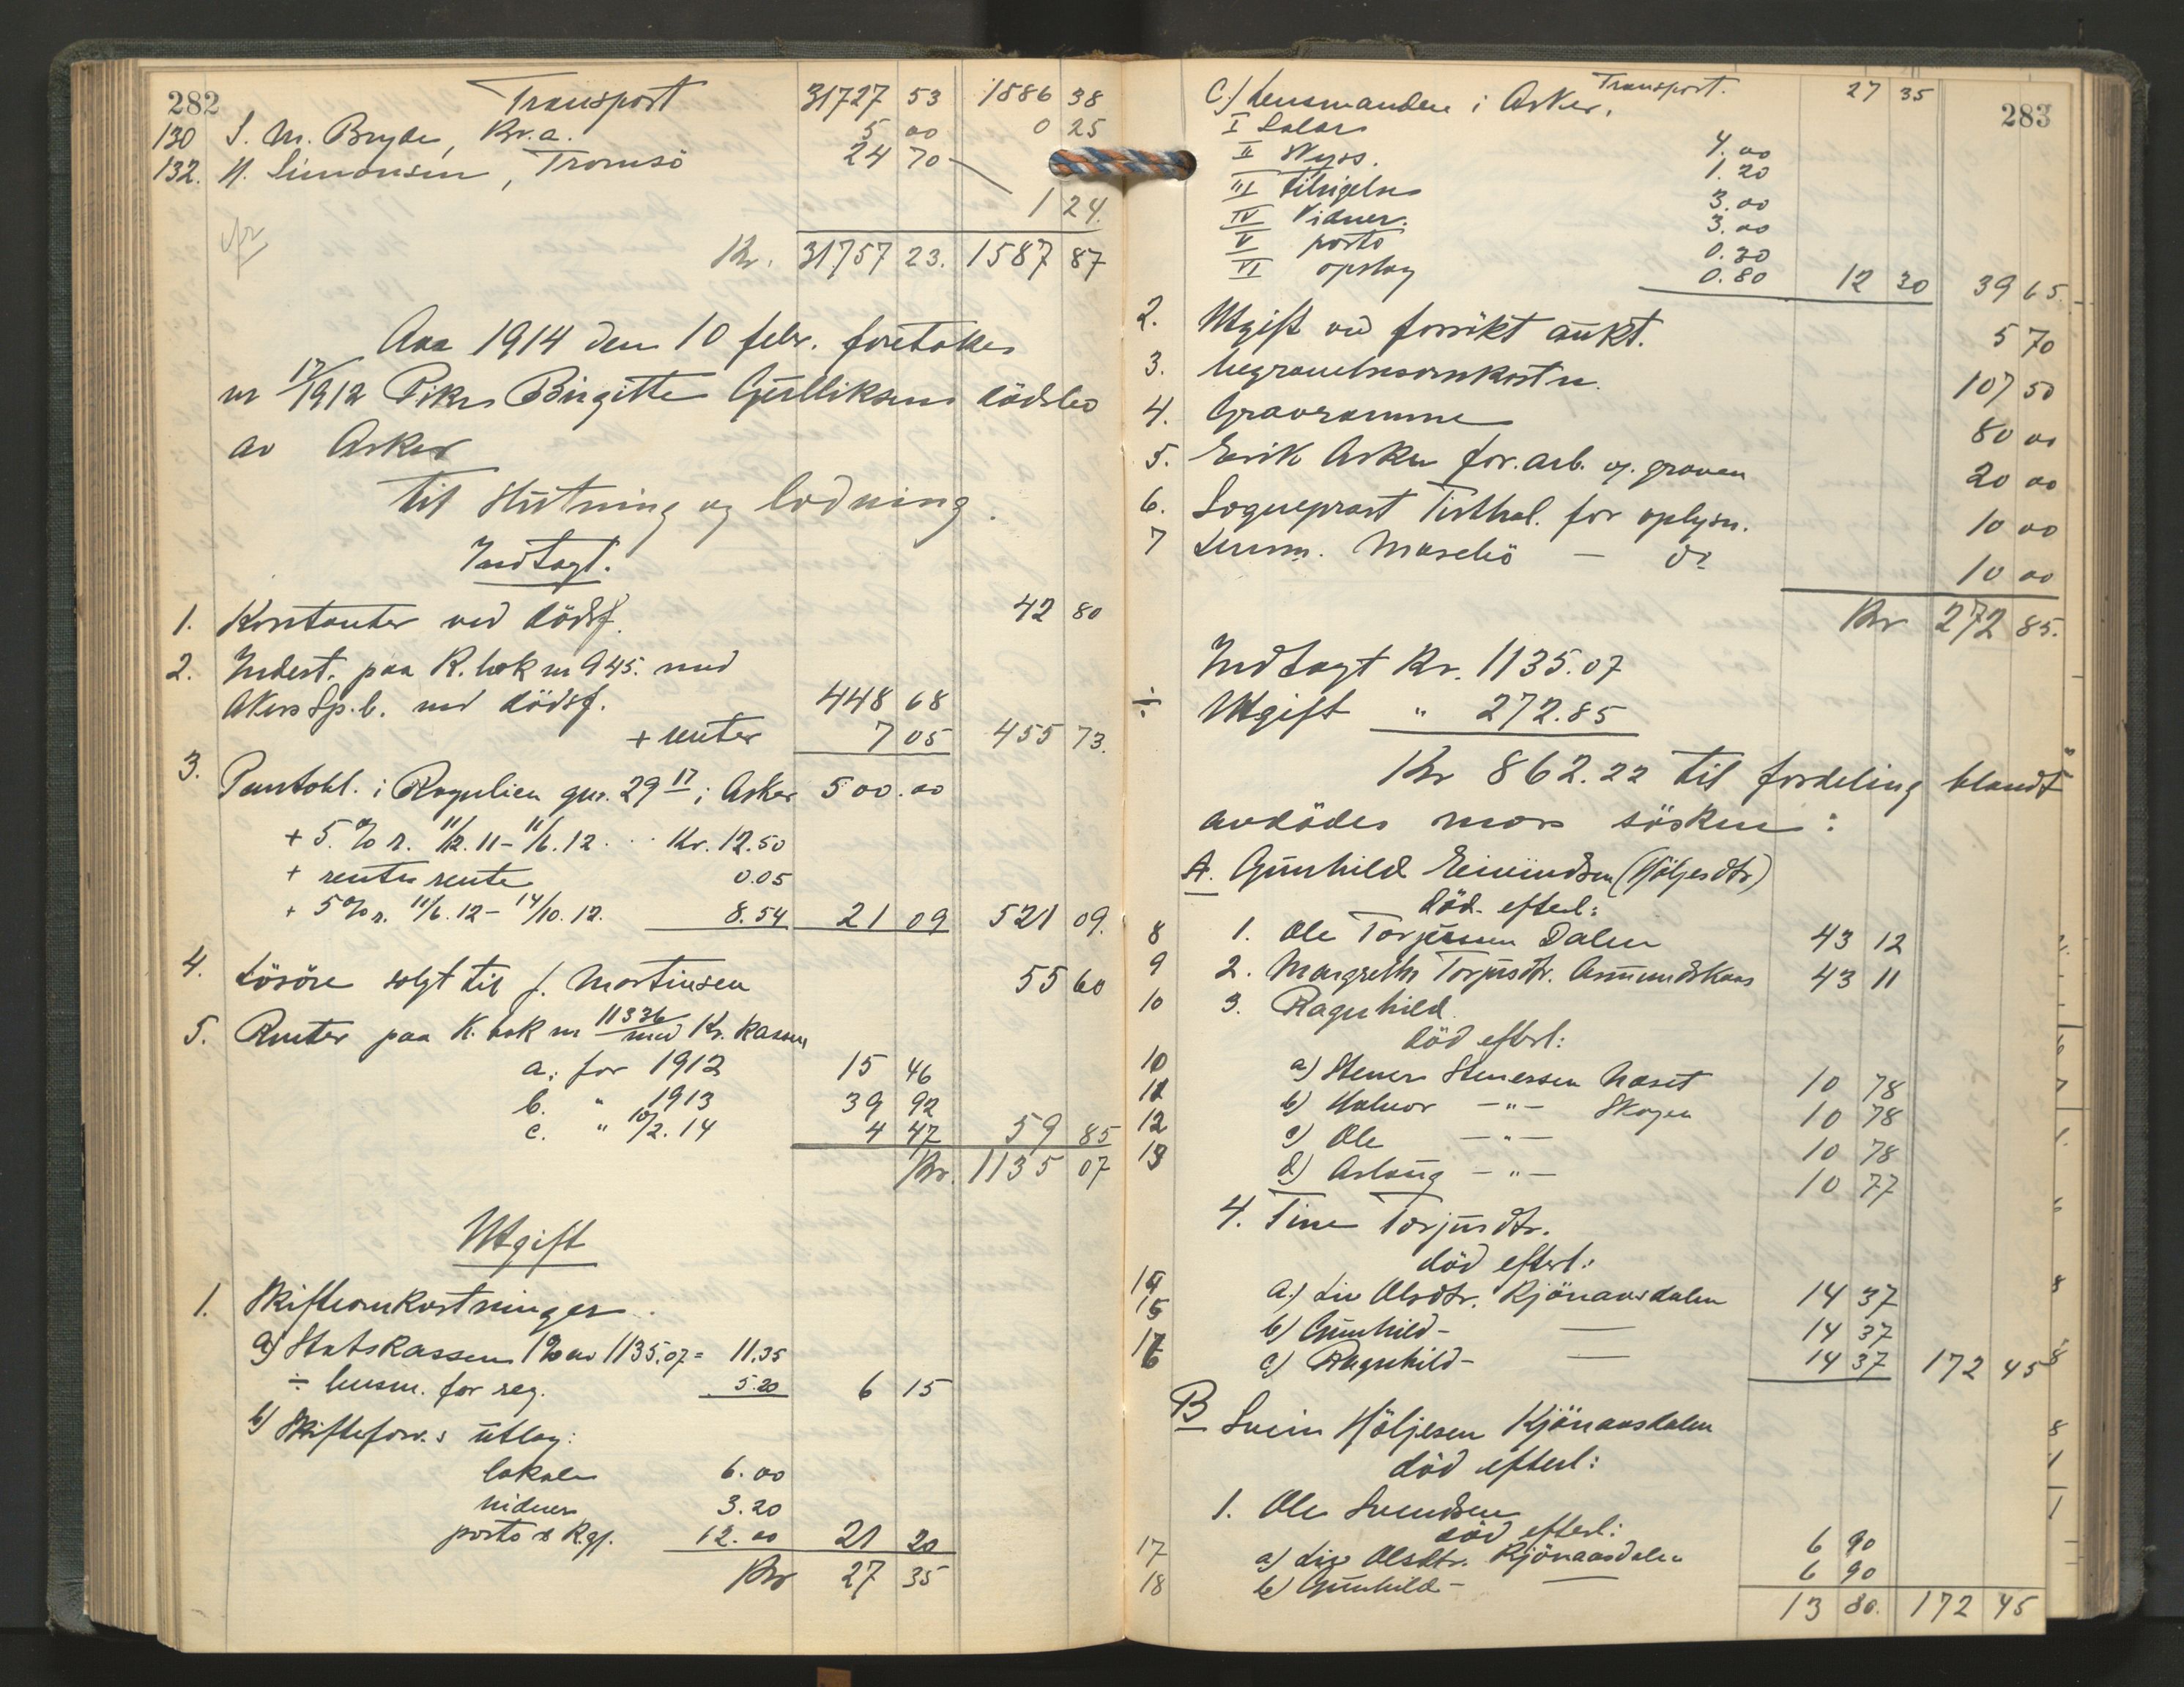 282
Transport 31727 53 1586 38
130 S. M. Bryde, Kr.a. 5 00 0 25
132. N. Simonsen, Tromsö 24 70 1 24.
Kr. 31757 23. 1587 87
Aar 1914 den 10 febr. foretokes
nr 17/1912 Pike Birgitte Gulliksens dödsbo
av Asker
til slutning og lodning.
Indtægt.
1. Kontanter ved dödsf. 42 80
2. Indest. paa K. bok nr 945. med
Akers Sp.b. ved dödsf. 448 68
+ renter 7 05 455 73.
3. Pantobl. i Rognlien gnr. 29 17 i Asker 500.00
+ 5 % r. 11/12. 11 – 11/6. 12 Kr. 12.50
+ renters rente 0.05
+ 5 % r. 11/6. 12 – 14/10. 12. 8.54 21 09 521 09.
4. Lösöre solgt til J. Martinsen 55 60
5. Renter paa K. bok nr 11336 med Kr. kassen
a. for 1912 15 46
b. " 1913 39 92
c. " 10/2. 14 4 47 59 85
Kr. 1135 07
Utgift
1. Skifteomkostninger.
a) Statskassen 1% av 1135.07 = 11.35
÷ lensm. for reg. 5.20 6 15
b) Skifteforv.s utlæg:
lokale 6.00
vidner 3.20
porto & Kgj. 12.00 21 20
Kr 27 35
283
Transport. 27 35
C.) Lensmanden i Asker.
I Salær 4.00
II Skyss. 1.20
III tilsigelse 3.00
IV Vidner. 3.00
V porto 0.30
VI opslag 0.80 12 30 39 65.
2. Utgift ved forsökt aukt. 5 70
3. begravelsesomkostn. 107 50
4. Gravramme 80 00
5. Erik Asker for arb. og. graven 20 00
6. Sogneprest Tisthal. for oplysn. 10 00
7 Lensm. — do 10 00
Kr 272 85.
Indtægt Kr. 1135.07
÷ Utgift " 272.85
Kr 862.22 til fordeling blandt
avdödes mors sösken:
A. Gunhild Eivindsen (Höljesdtr)
död. efterl:
8 1. Ole Torjussen Dalen 43 12
9 2. Margrethe Torjusdtr. Aamundskaas 43 11
10 3. Ragnhild
död efterl:
10 a) Stener Stenersen Næset 10 78
11 b) Halvor —"— Skogen 10 78
12 c) Ole —"— 10 78
13 d) Aslaug —"— 10 77
4. Tine Torjusdtr.
död efterl:
15 a.) Liv Olsdtr. Kjönaasdalen 14 37
15 b) Gunhild - — 14 37
16 c) Ragnhild - — 14 37 172 45
B Svein Höljesen Kjönaasdalen
död efterl:
1. Ole Svendsen
död efterl:
17 a) Liv Olsdtr. Kjönaasdalen 6 90
18 b) Gunhild - — 6 90
13 80. 172 45